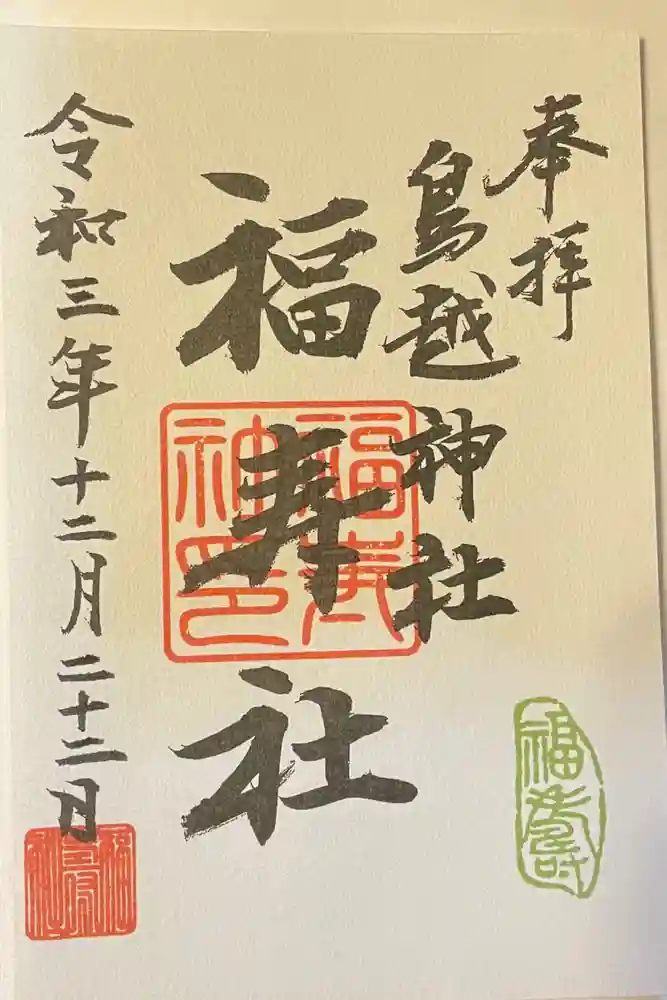 奉拝
鳥越神社
福寿社
令和三年十二月二十二日
福壽
福壽社